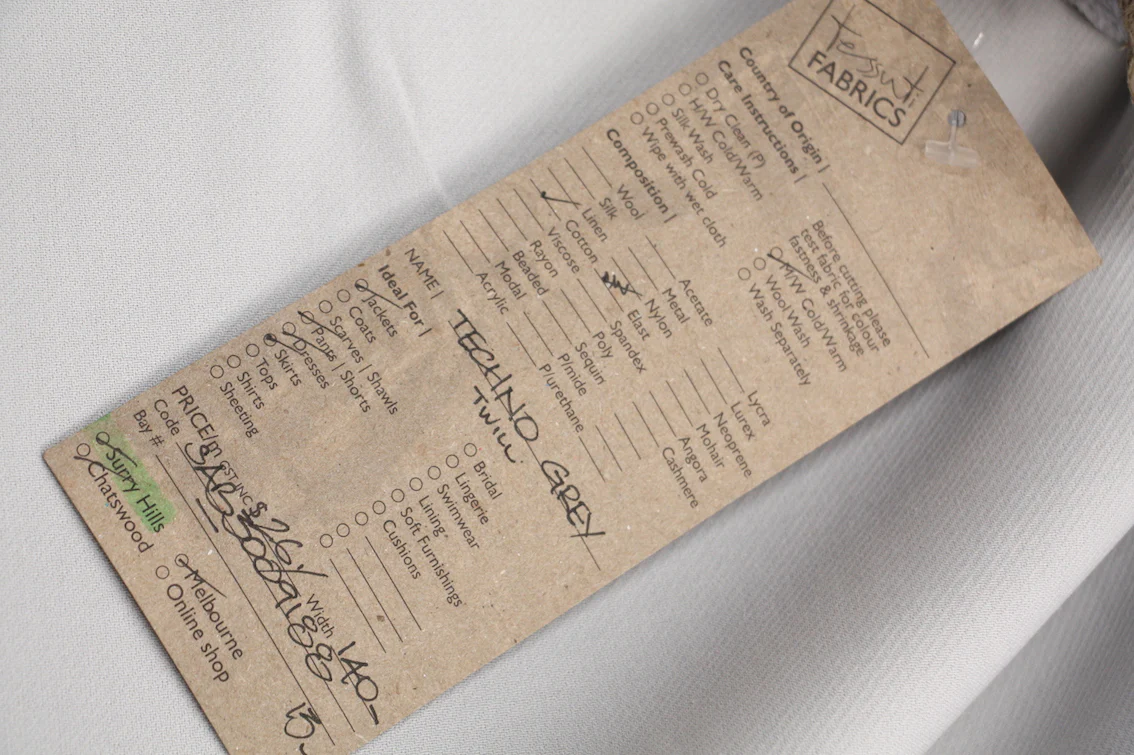 Tessuti
FABRICS
Country of Origin |
Care Instructions |
Dry Clean (P)
H/W Cold/Warm
Silk Wash
Prewash Cold
Wipe with wet cloth
Before cutting please
test fabric for colour
fastness & shrinkage
M/W Cold/Warm
Wool Wash
Wash Separately
Composition |
Wool
Silk
Linen
Cotton
Viscose
Rayon
Beaded
Modal
Acrylic
Acetate
Metal
Nylon
Elast
Spandex
Poly
Sequin
P/mide
P/urethane
Lycra
Lurex
Neoprene
Mohair
Angora
Cashmere
NAME | TECHNO GREY
TWILL
Ideal For |
Jackets
Coats
Scarves | Shawls
Pants | Shorts
Dresses
Skirts
Tops
Shirts
Sheeting
Bridal
Lingerie
Swimwear
Lining
Soft Furnishings
Cushions
PRICE/m GST INC $26 Width 140
Code
Bay #
13
Surry Hills
Chatswood
Melbourne
Online shop